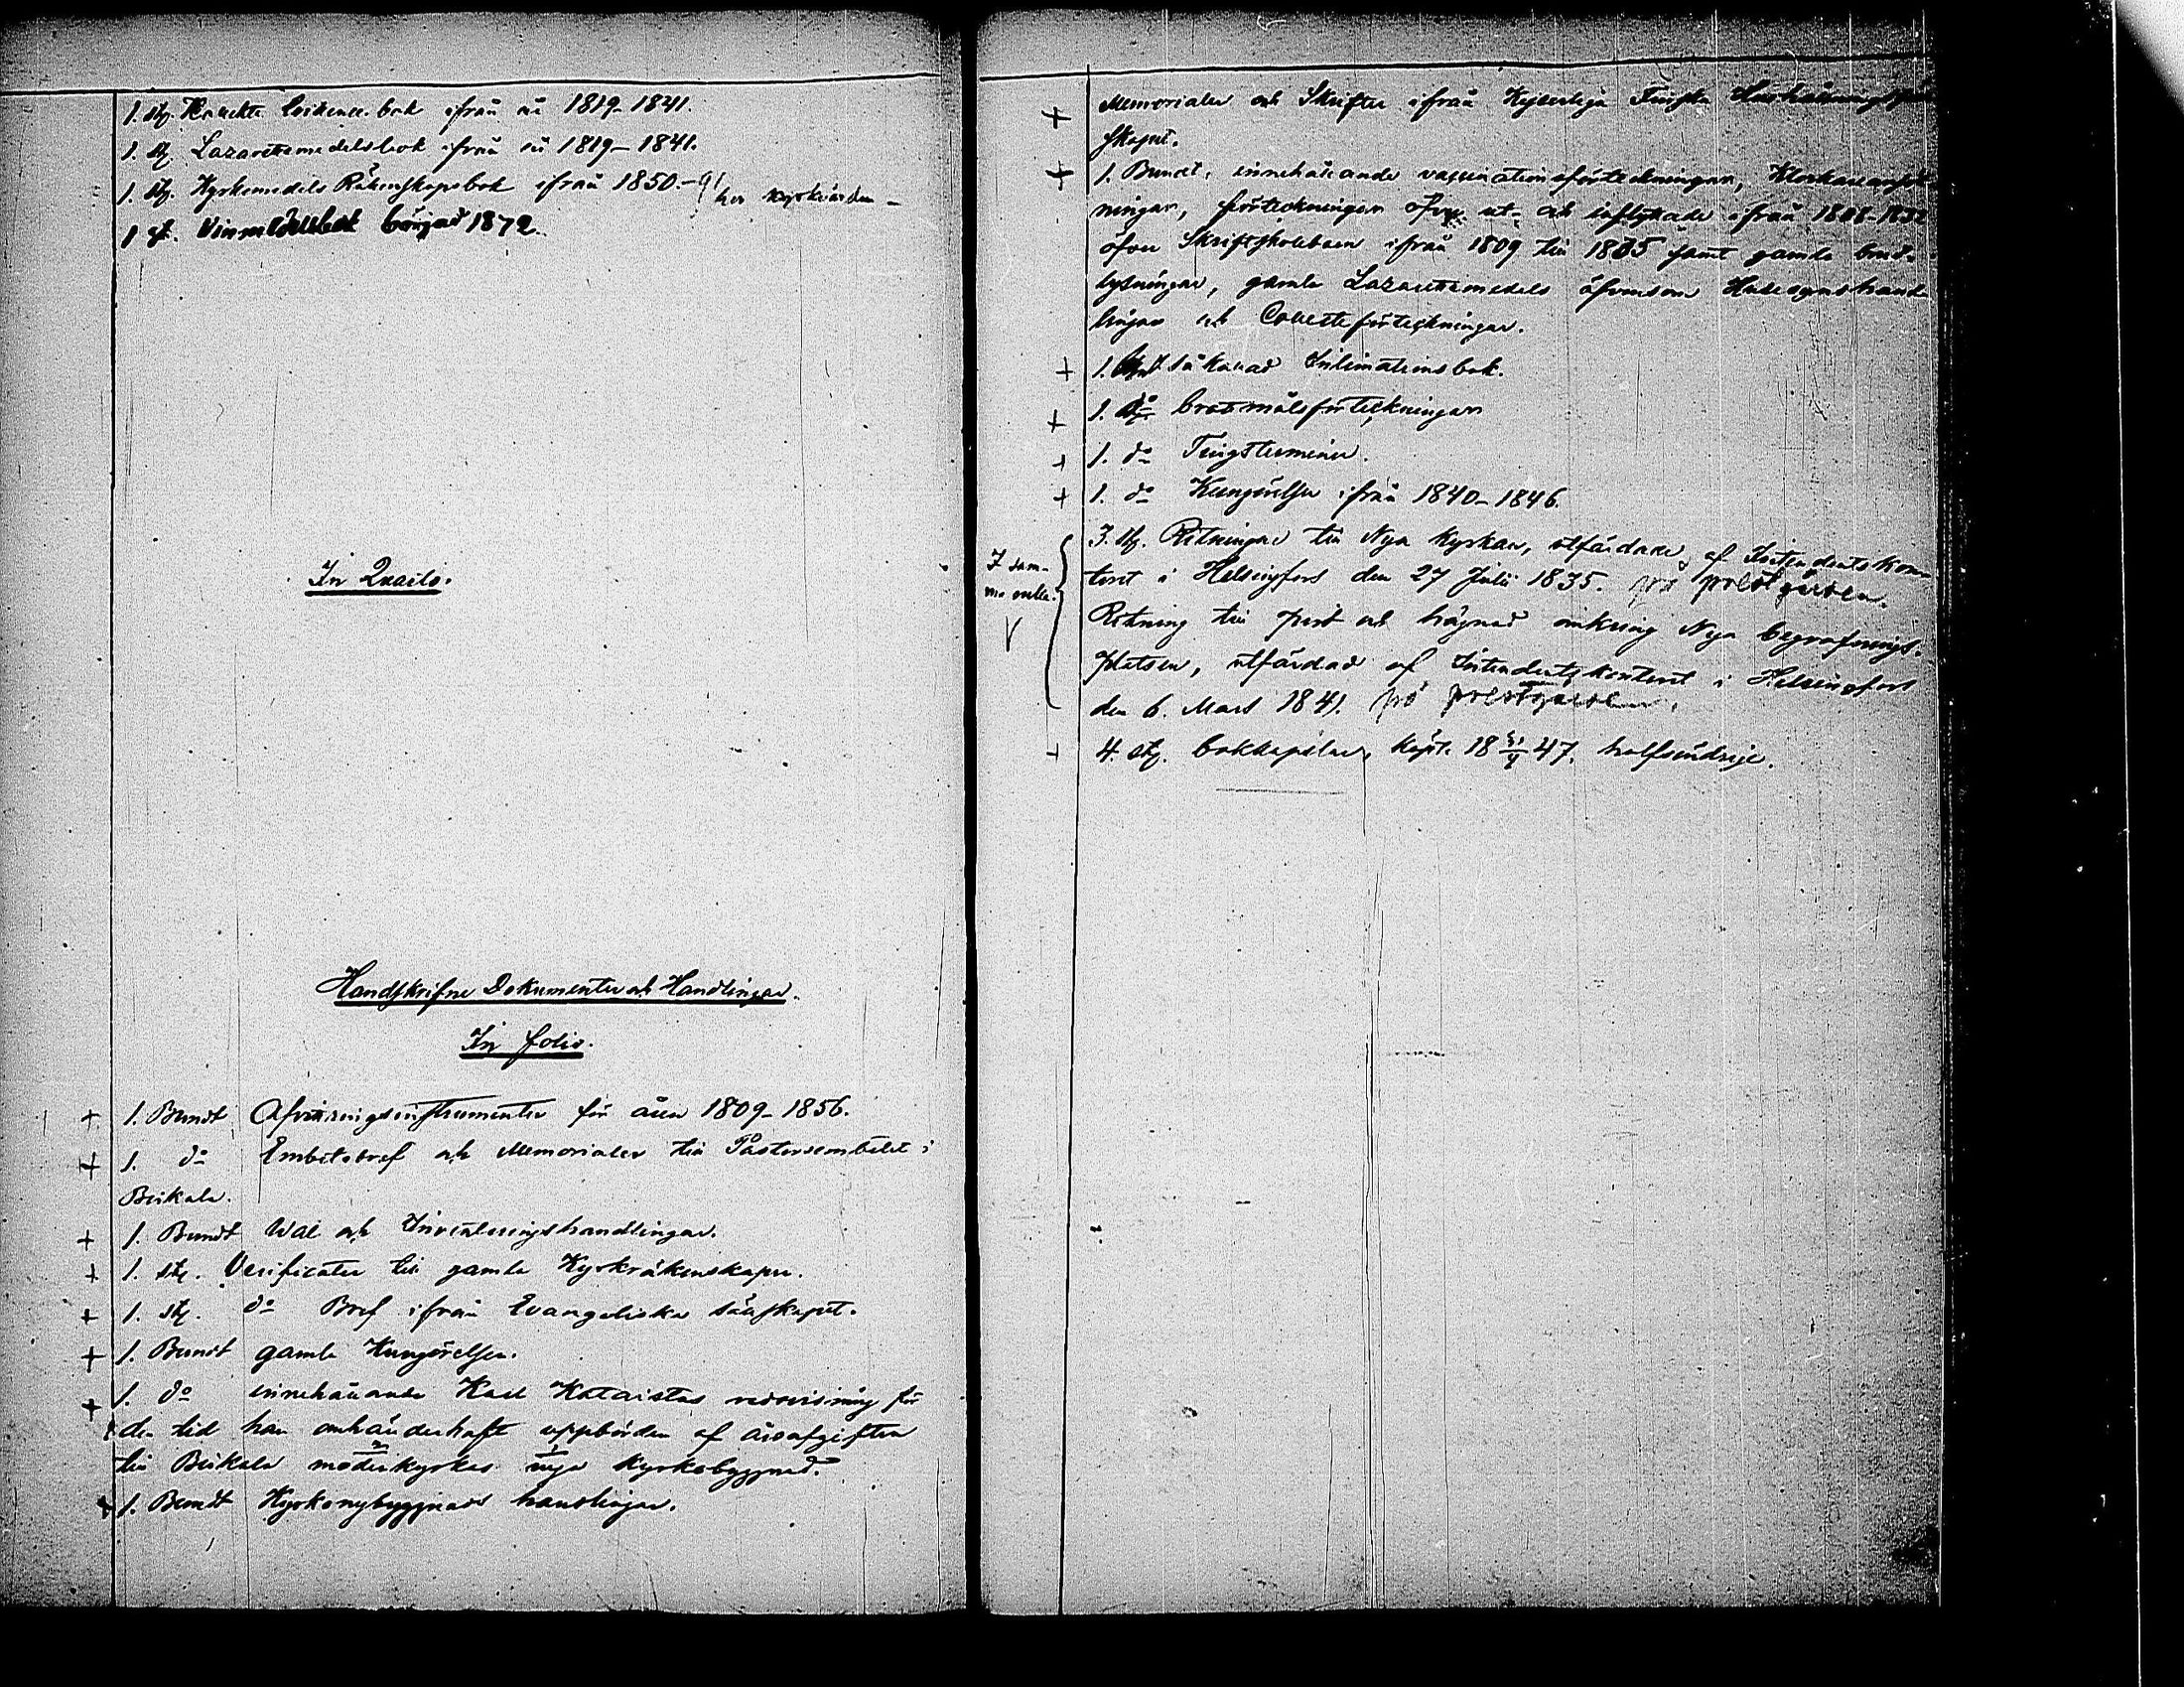 1. st. Collecte Evidence bok ifrån år 1819-1841.
1. st. Lazarettsmedelsbok ifrån år 1819-1841.
1. st. Kyrkomedels Räkenskapsbok ifrån 1850.-91 hos kyrkvärden-
1 st. Vinmedelsbok börjad 1872.
In Quarto.
Handskrifne Dokumenter och Handlingar.
In folio.
+ 1. Bundt Afvittringsinstrumenter för åren 1809-1856.
+ 1. do Embetsbref och Memorialer till Pastorsembetet i
Birkala.
+ 1. Bundt Wal och Inventeringshandlingar.
+ 1. st. Verificater till gamla Kyrkräkenskaper.
+ 1. st. do Bref ifrån Evangeliska sällskapet.
+ 1. Bundt gamla Kungörelser.
+ 1. do innehållande Karl Kataistos redovisning för
den tid han omhänderhaft uppbörden af årsafgiften
till Birkala moderkyrkas nya kyrkobyggnad.
+ 1. Bundt Kyrkonybyggnads handlingar.
+ Memorialer och Skrifter ifrån Kejserliga Finska Hushållnings
skapet.
+ 1. Bundt, innehållande vaccinationsförteckningar,
ningar, förteckningar öfver ut- och inflyttade ifrån 1808-1832
öfver Skriftskolebarn ifrån 1809 till 1835 samt gamla
lysningar, gamla Lazarettsmedels äfvensom Husesynshand-
lingar och Collectförteckningar.
+ 1. så kallad Intimationsbok.
+ 1. do brottmålsförteckningar
+ 1. do Tingsterminer.
+ 1. do Kungörelser ifrån 1840-1846.
3. st. Ritningar till Nya kyrkan, utfärdade af Intendentskon-
I sam-
ma rulle.
toret i Helsingfors den 27 Julii 1835. på prestgården.
Ritning till port och hägnad omkring Nya begrafnings-
platsen, utfärdad af Intendentskontoret i Helsingfors
den 6. Mars 1841. på prestgården.
+ 4. st. bokkapslar, köpt. 18 47. halfsudrige.